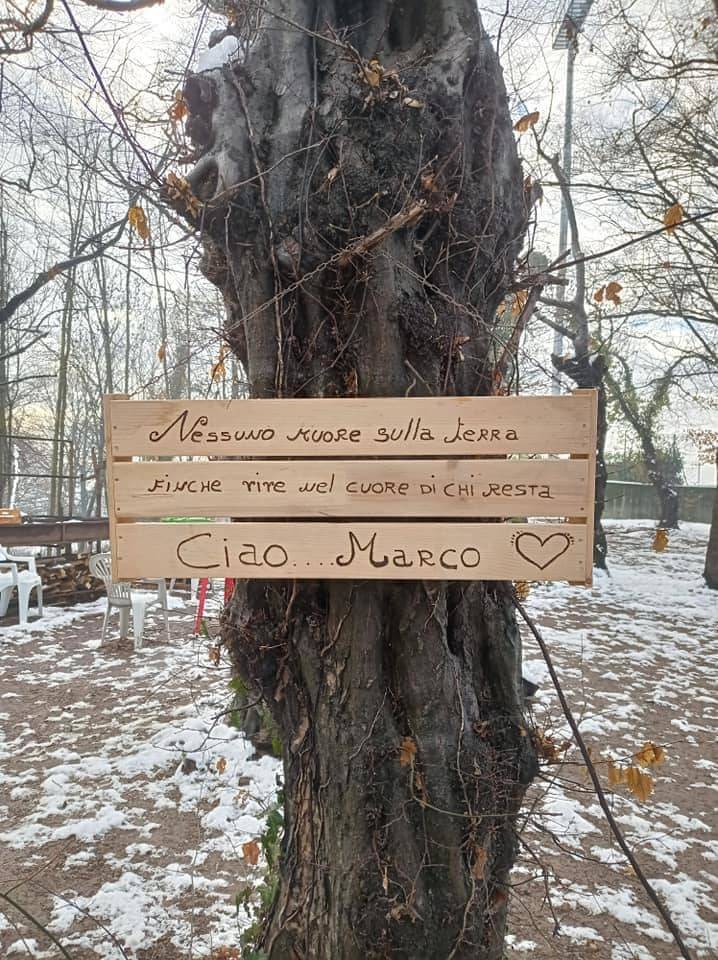 Nessuno muore sulla terra
finche vive nel cuore di chi resta
Ciao....Marco